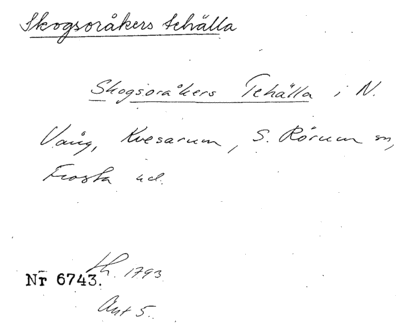 Skogsoråkers tehälla
Skogsoråkers Tehälla i N.
Vång, Kvesarum, S. Rörum m,
Frosta hd.
Nr 6743. Lh. 1793
Ant 5.